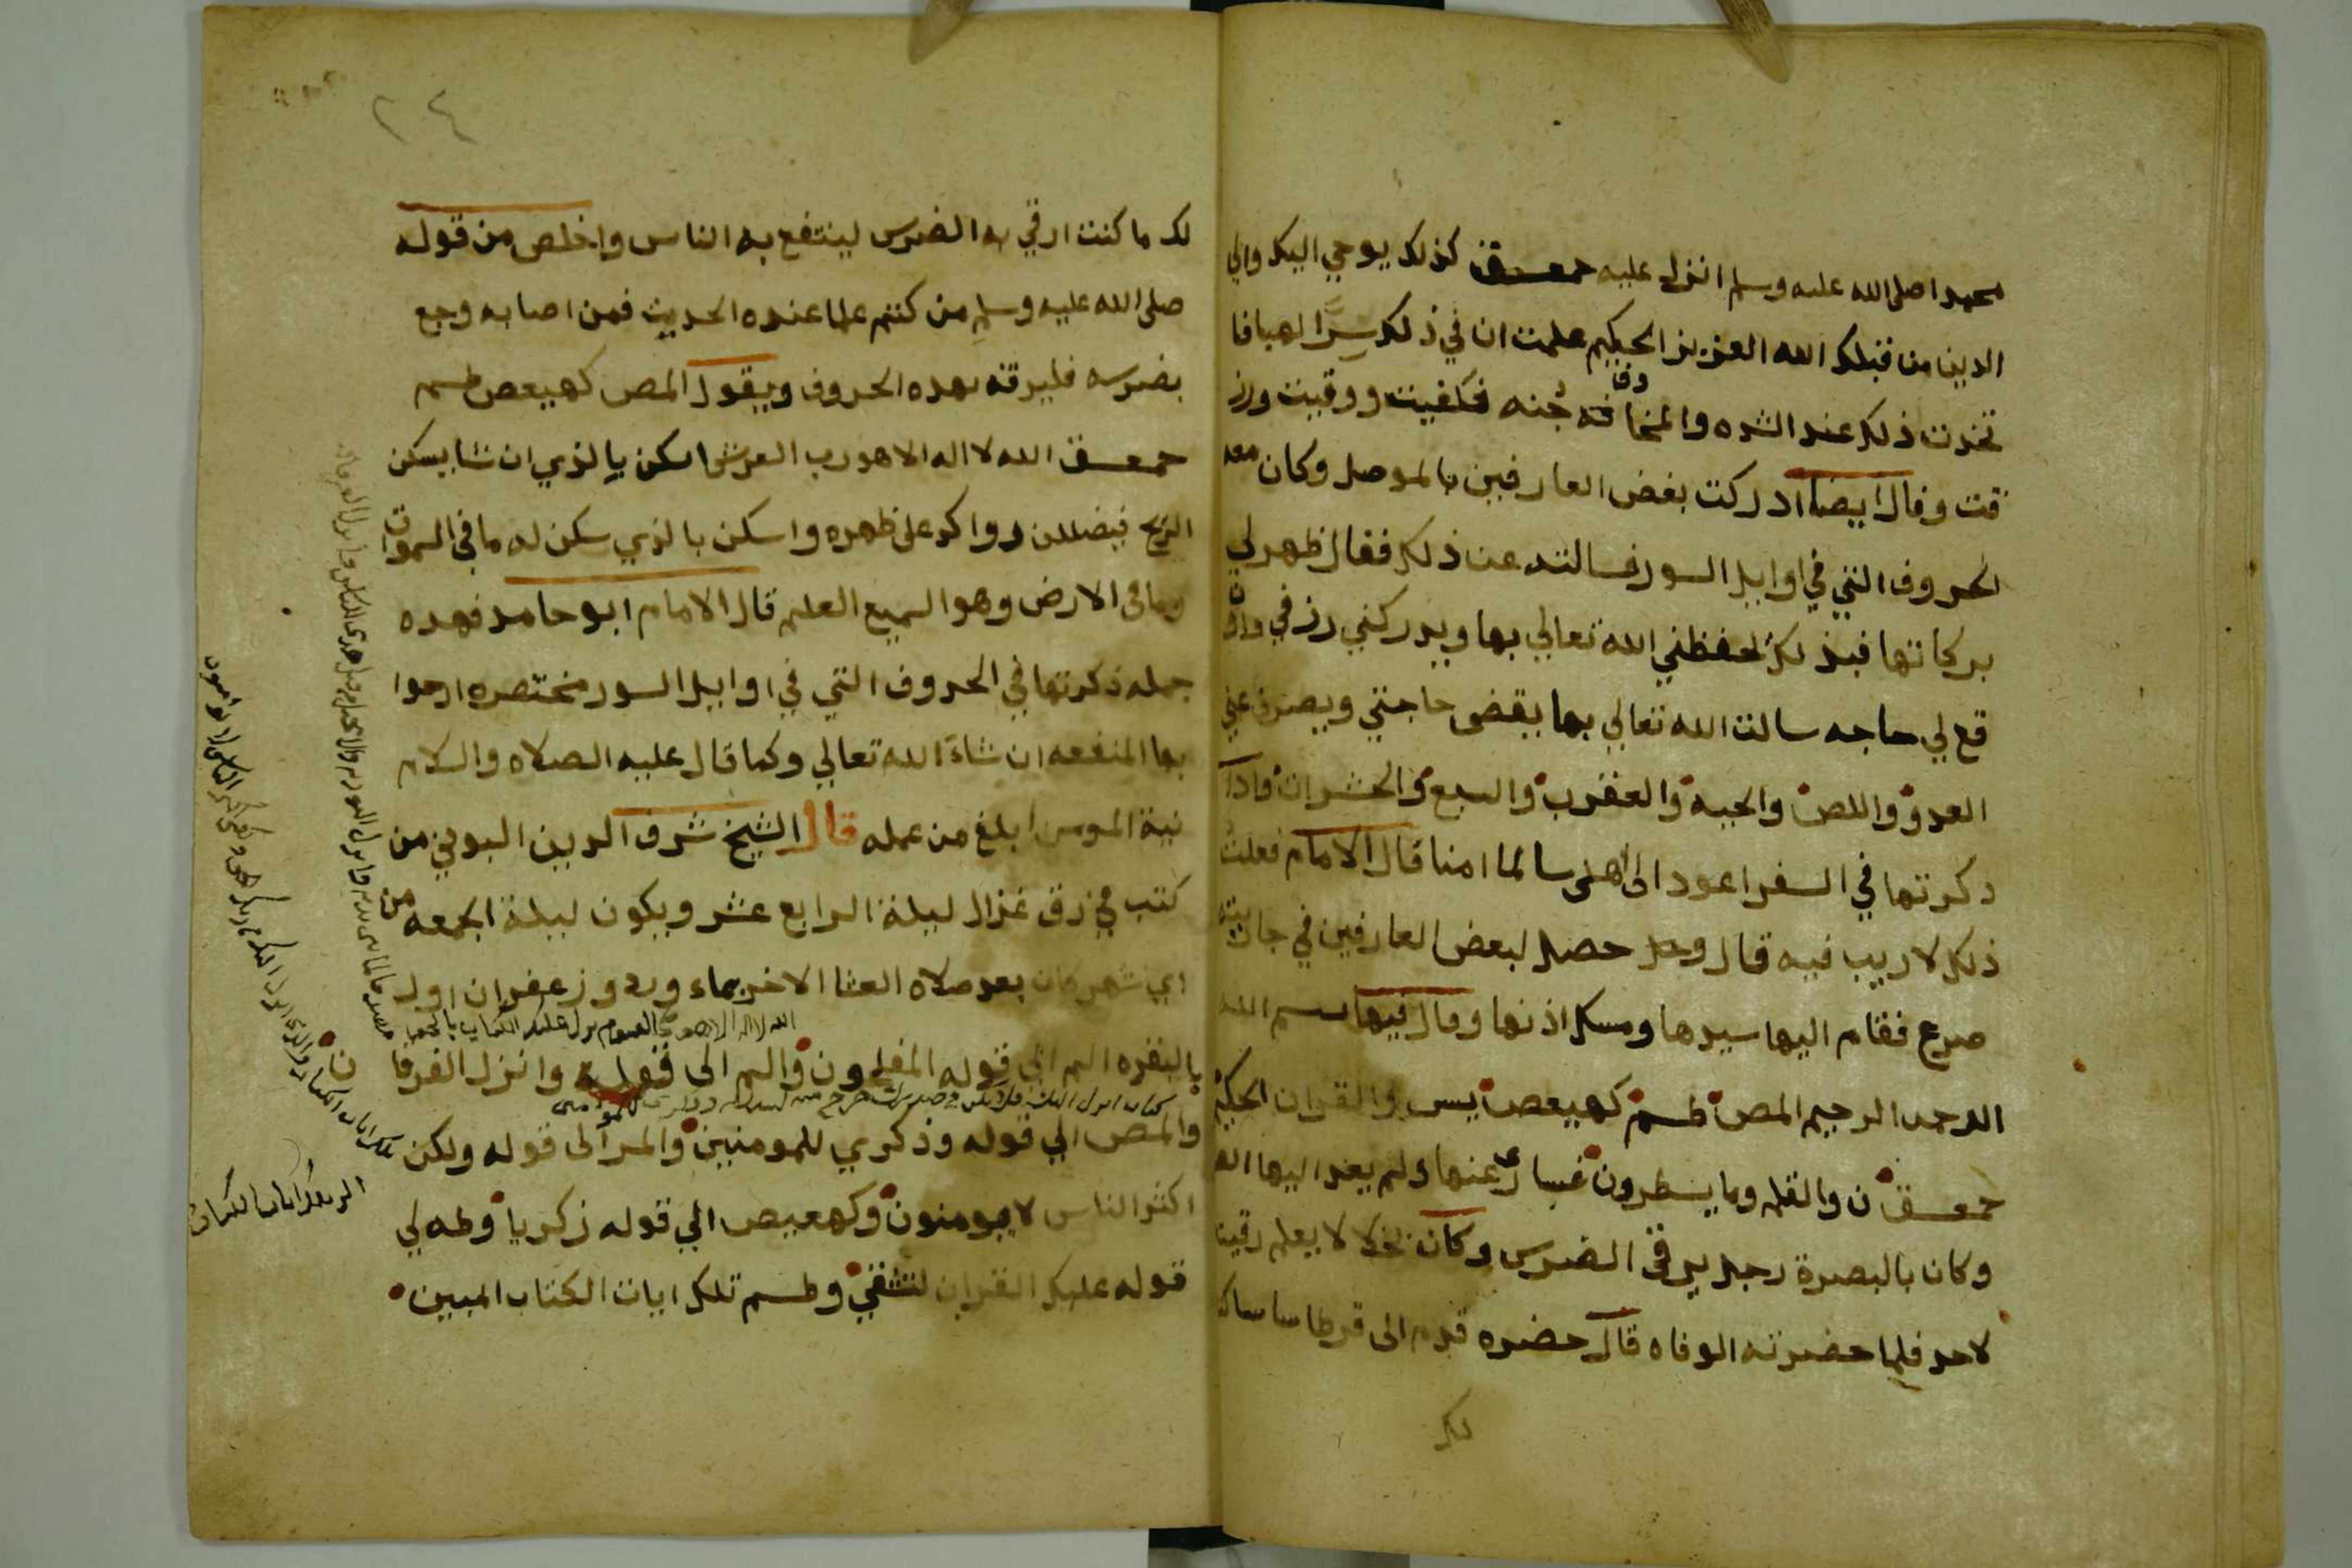 محمدا صلى الله عليه وسلم انزل عليه حمعسق كذلك يوحي اليك والي
الدين من قبلك الله العزيز الحكيم علمت ان في ذلك سرا الهيا فا
تخدت ذلك عند الشده والمخافة جنه فكفيت ووقيت ورز
قت وقال ايضا ادركت بغض العارفين بالموصل وكان معه
الحروف التي في اوايل السور فسالته عن ذلك فقال ظهر لي
بركاتها فبذلك يحفظني الله تعالي بها ويدر كني رزقي واذا
قع لي حاجه سالت الله تعالي بها يقضى حاجتي ويصرف عني
العدو واللص والحيه والعقرب والسبع والحشرات واذا
ذكرتها في السفر اعود الى اهلى سالما امنا قال الامام فعلت
ذلك لا ريب فيه قال وحصل لبعض العارفين في جاريته
صرع فقام اليها سيدها ومسك اذنها وقال فيها بسم الله
الرحمن الرحيم المص طسم كهيعص يس والقران الحكيم
حمعسق ن والقلم وما يسطرون فسارى عنها ولم يعد اليها
وكان بالبصرة رجل يرقى الضرس وكان بخلا لا يعلم رقيته
لاحد فلما حضرته الوفاه قال حضره قدم الى قرطاسا
لك
٢٤
لك ما كنت ارقي به الضرس لينتفع به الناس واخلص من قوله
صلى الله عليه وسلم من كتم علما عنده الحديث فمن اصابه وجع
بضرسه فليرقه بهده الحروف ويقول المص كهيعص طسم
حمعسق الله لا اله الا هو رب العرش اسكن يالذي ان شا يسكن
الريح فيضللن رواكد على ظهره واسكن بالذي سكن له ما في السموات
وما فى الارض وهو السميع العلم قال الامام ابو حامد فهده
جمله ذكرتها في الحروف التي في اوايل السور مختصره ارجوا
بها المنفعه ان شاء الله تعالي وكما قال عليه الصلاه والسلام
نية المومن ابلغ من عمله قال الشيخ شرف الدين البوني من
كتب في رق غزال ليلة الرابع عشر ويكون ليلة الجمعه من
اي شهر كان بعد صلاه العشا الاخر بماء ورد وزعفران اول
الله لا اله الا هو الحي القيوم نزل عليك الكتاب بالحق
البقره الم الي قوله المفلحون والم الى قوله وانزل الفرقان
والمص الي قوله وذكري للمومنين والمر الى قوله ولكن
اكثر الناس لا يومنون وكهيعص الي قوله زكريا وطه لي
قوله عليك القران لتشقي وطسم تلك ايات الكتاب المبين